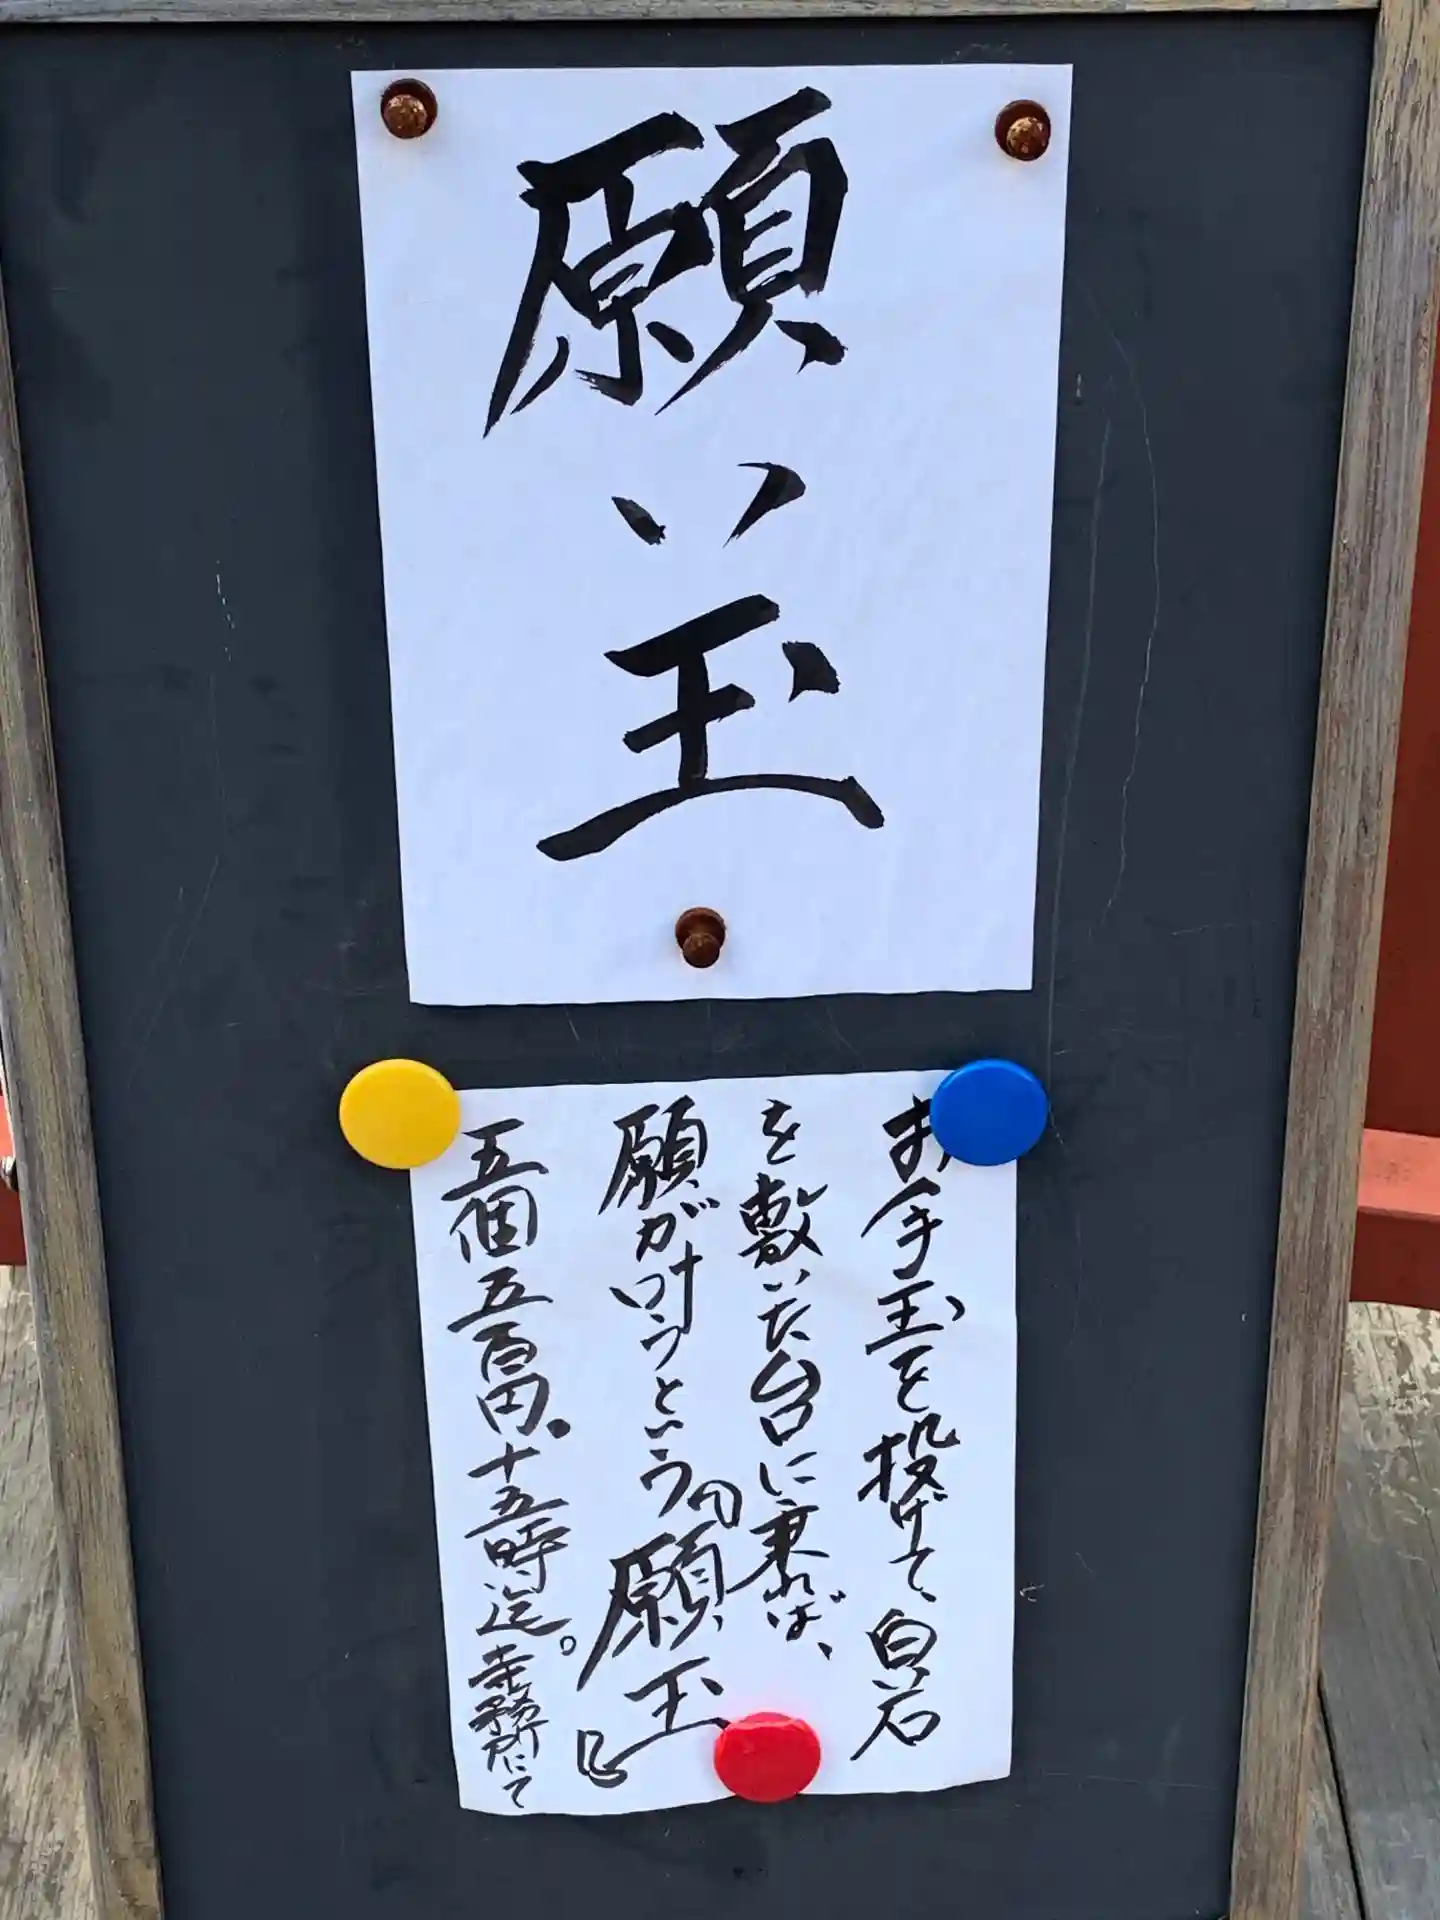 願い玉
お手玉を投げて、白石
を敷いた台に乗れば、
願が叶うという『願玉』
五個五百円。十五時迄。寺務所にて